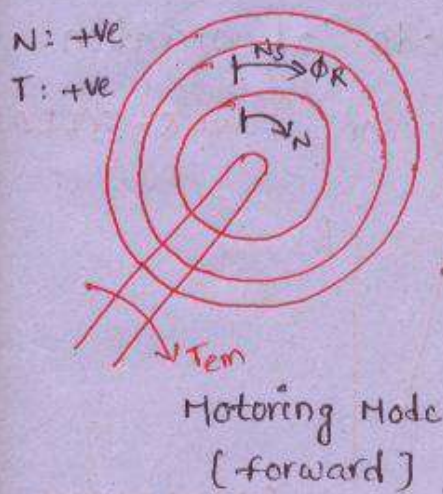 N: +ve
T: +ve
Ns
ΦR
N
Tem
Motoring Mode
[forward]